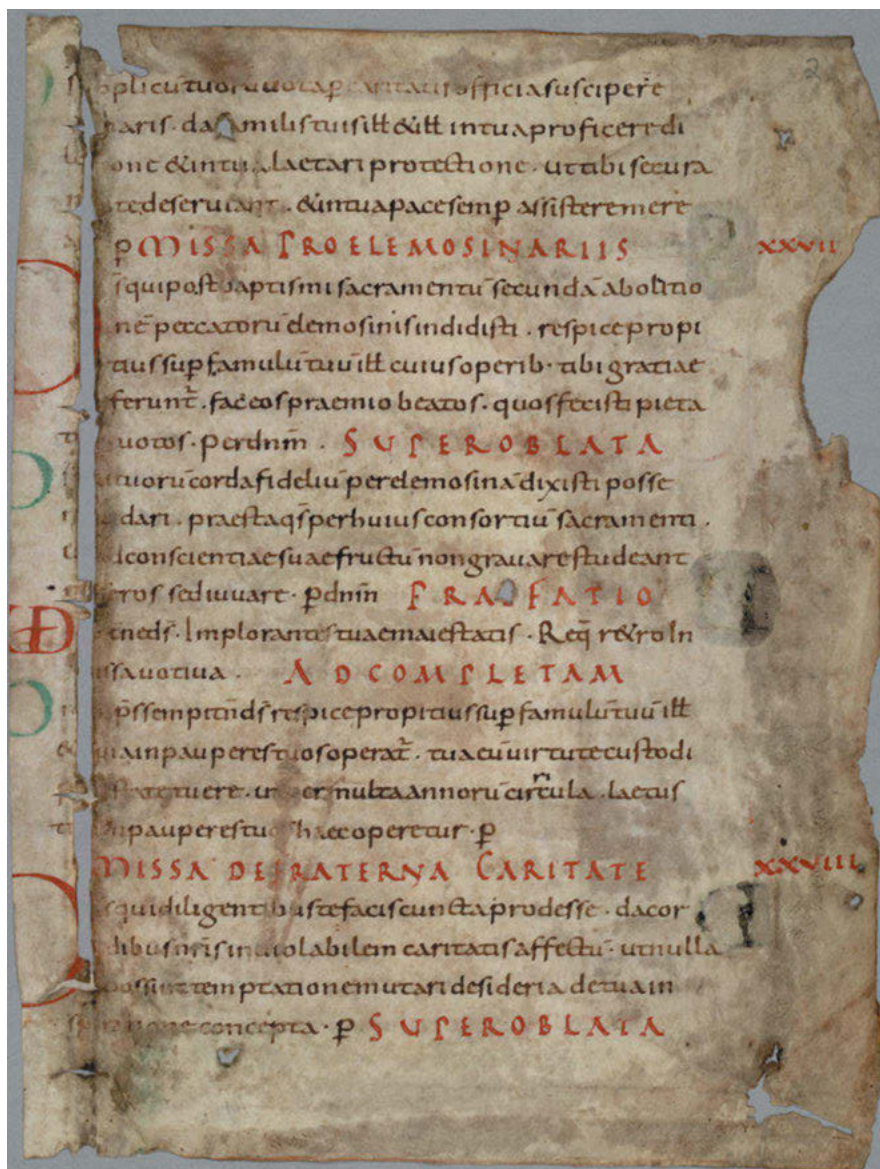 2
plicū tuorū uota ꝑ caritatis officia suscipere
naris · da famulis tuis iłł & iłł in tua proficere di
one & in tua laetari protectione · ut tibi secura
te deseruiant · & in tua pace semꝑ assistere mere
ꝑ MISSA PRO ELEMOSINARIIS XXVII
s qui post baptismi sacramentū secundā abolitio
nē peccatorū elemosinis indidisti · respice propi
tius suꝑ famulū tuū iłł cuius operib · tibi gratiae
ferunt̄ · fac eos praemio beatos · quos fecisti pieta
uotos · Per dnm̄ · SUPER OBLATA
tuorū corda fideliū per elemosinā dixisti posse
dari · praesta qs̄ per huius consortiū sacramenti ·
conscientiae suae fructū non grauare studeant
eros sed iuuare · ꝑ dnm̄ PRAEFATIO
ne ds̄ · Implorantes tuae maiestatis · Req̄ retro In
ssa uotiua · AD COMPLETAM
ps̄ sempitn̄ ds̄ respice propitius suꝑ famulū tuū iłł
uia in pauperes tuos operat̄ · tua cū uirtute custodi
uere · ut per multa annorū circula · laetus
in pauperes tuos haec operetur · ꝑ
MISSA DE FRATERNA CARITATE XXVIII
s qui diligentibus te facis cuncta prodesse · da cor
dibus nr̄is inuiolabilem caritatis affectū · ut nulla
possint temptatione mutari desideria de tua in
concepta · ꝑ SUPER OBLATA